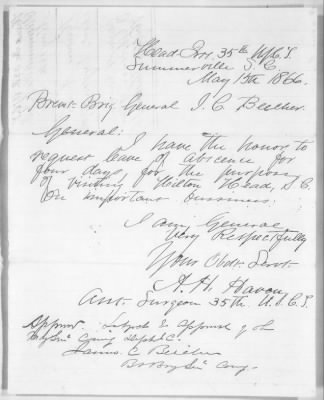 Head Qrs 35th U.S.C.T.
Summerville S.C.
May 15th 1866.
Brevt. Brig General J. C. Beecher.
General:
I have the honor to
request leave of abscence for
four days, for the purpose
of visiting Hilton Head, S.C.
On important business.
I am General
Very Respectfully
Your Obdt. Servt.
A. H. Haven
Asst. Surgeon 35th U.S.C.T.
Approved. Subject to Approval of
Comg Dept S.C.
James C Beecher
Bvt Brig Genl Comg.